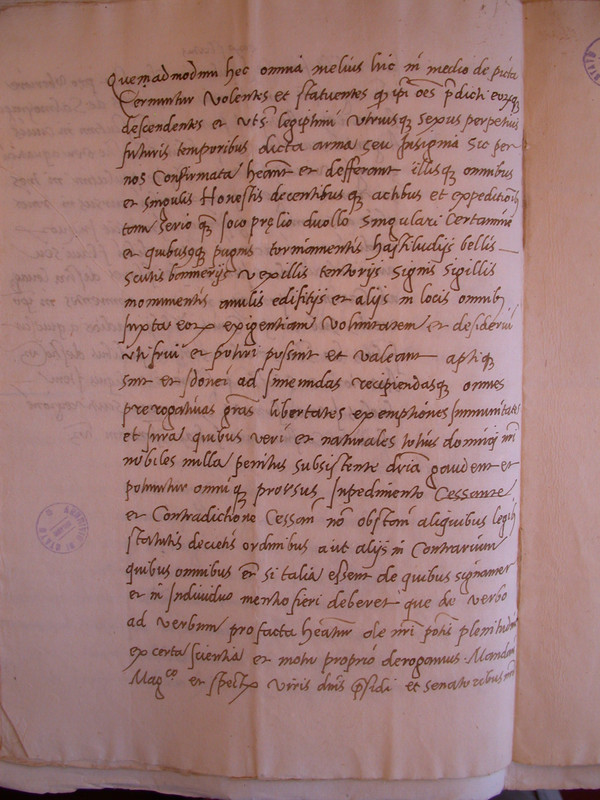 Quemadmodum hec omnia melius hic in medio de picta
Cernuntur Volentes et statuentes q ipi oes pdicti eorq
descendentes et utš legiptimi utriusq sexus perpetuis
futuris temporibus dicta arma seu Insignia sic per
nos Confirmata heant et defferant illisq omnibus
et singulis Honestis decentibusq actibus et expeditionib
tam serio q Joco prelio duollo singulari Certamine
et quibusq pugnis tormamentis hastiludijs bellis
scutis bannerijs vexillis tentorijs signis sigillis
monumentis anulis edifitijs et alijs in locis omnib
Juxta eor exigentiam Voluntatem et desiderium
uti frui et potiri possint et valeant aptiq
sint et Idonei ad Ineundas recipiendasq omnes
prerogativas gras libertates exemptiones Immunitates
et Jura quibus veri et naturales totius dominij nri
nobiles nulla penitus subsistente dria gaudent et
potiuntur omniq prorsus Inpedimento Cessante
et Contraditione Cessan no obstan aliquibus legib
statutis decretis ordinibus aut alijs in Contrarium
quibus omnibus et si talia essent de quibus signanter
et in Individuo mentio fieri deberet que de verbo
ad verbum pro facta heantur de nri potis plenitudine
ex certa scientia et motu proprio derogamus. Mandan
Mag.co et spect viris dnis presidi et senatoribus nris